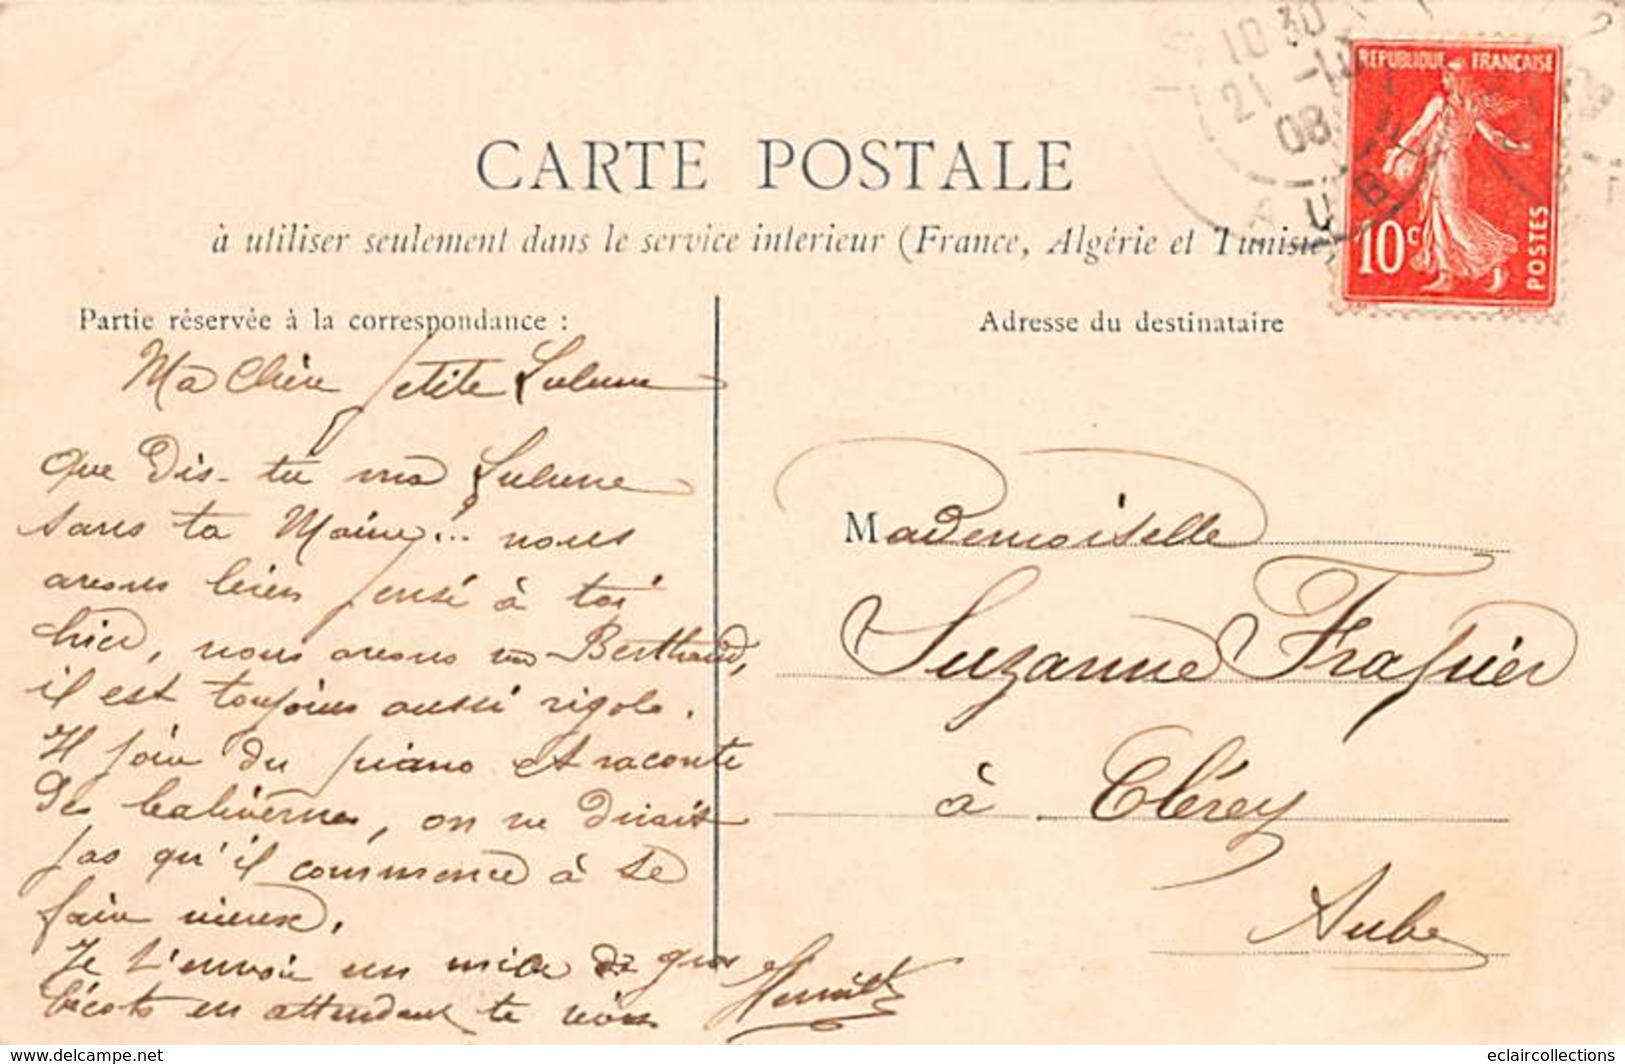 10 30
21 -10
08
AUBE
REPUBLIQUE FRANÇAISE
10c
POSTES
CARTE POSTALE
à utiliser seulement dans le service interieur (France, Algérie et Tunisie
Partie réservée à la correspondance :
Adresse du destinataire
Ma Chère petite Lulune
Que Dis-tu ma Lulune
sans ta Maine... nous
avons bien pensé à toi
hier, nous avons vu Berthaud,
il est toujours aussi rigolo.
Il joue du piano et raconte
des balivernes, on ne dirait
pas qu'il commence à se
faire vieux.
Je t'envoie un mille de gros
bécots en attendant te voir
Mademoiselle
Suzanne Frasier
à Clérey
Aube
www.delcampe.net
eclaircollections